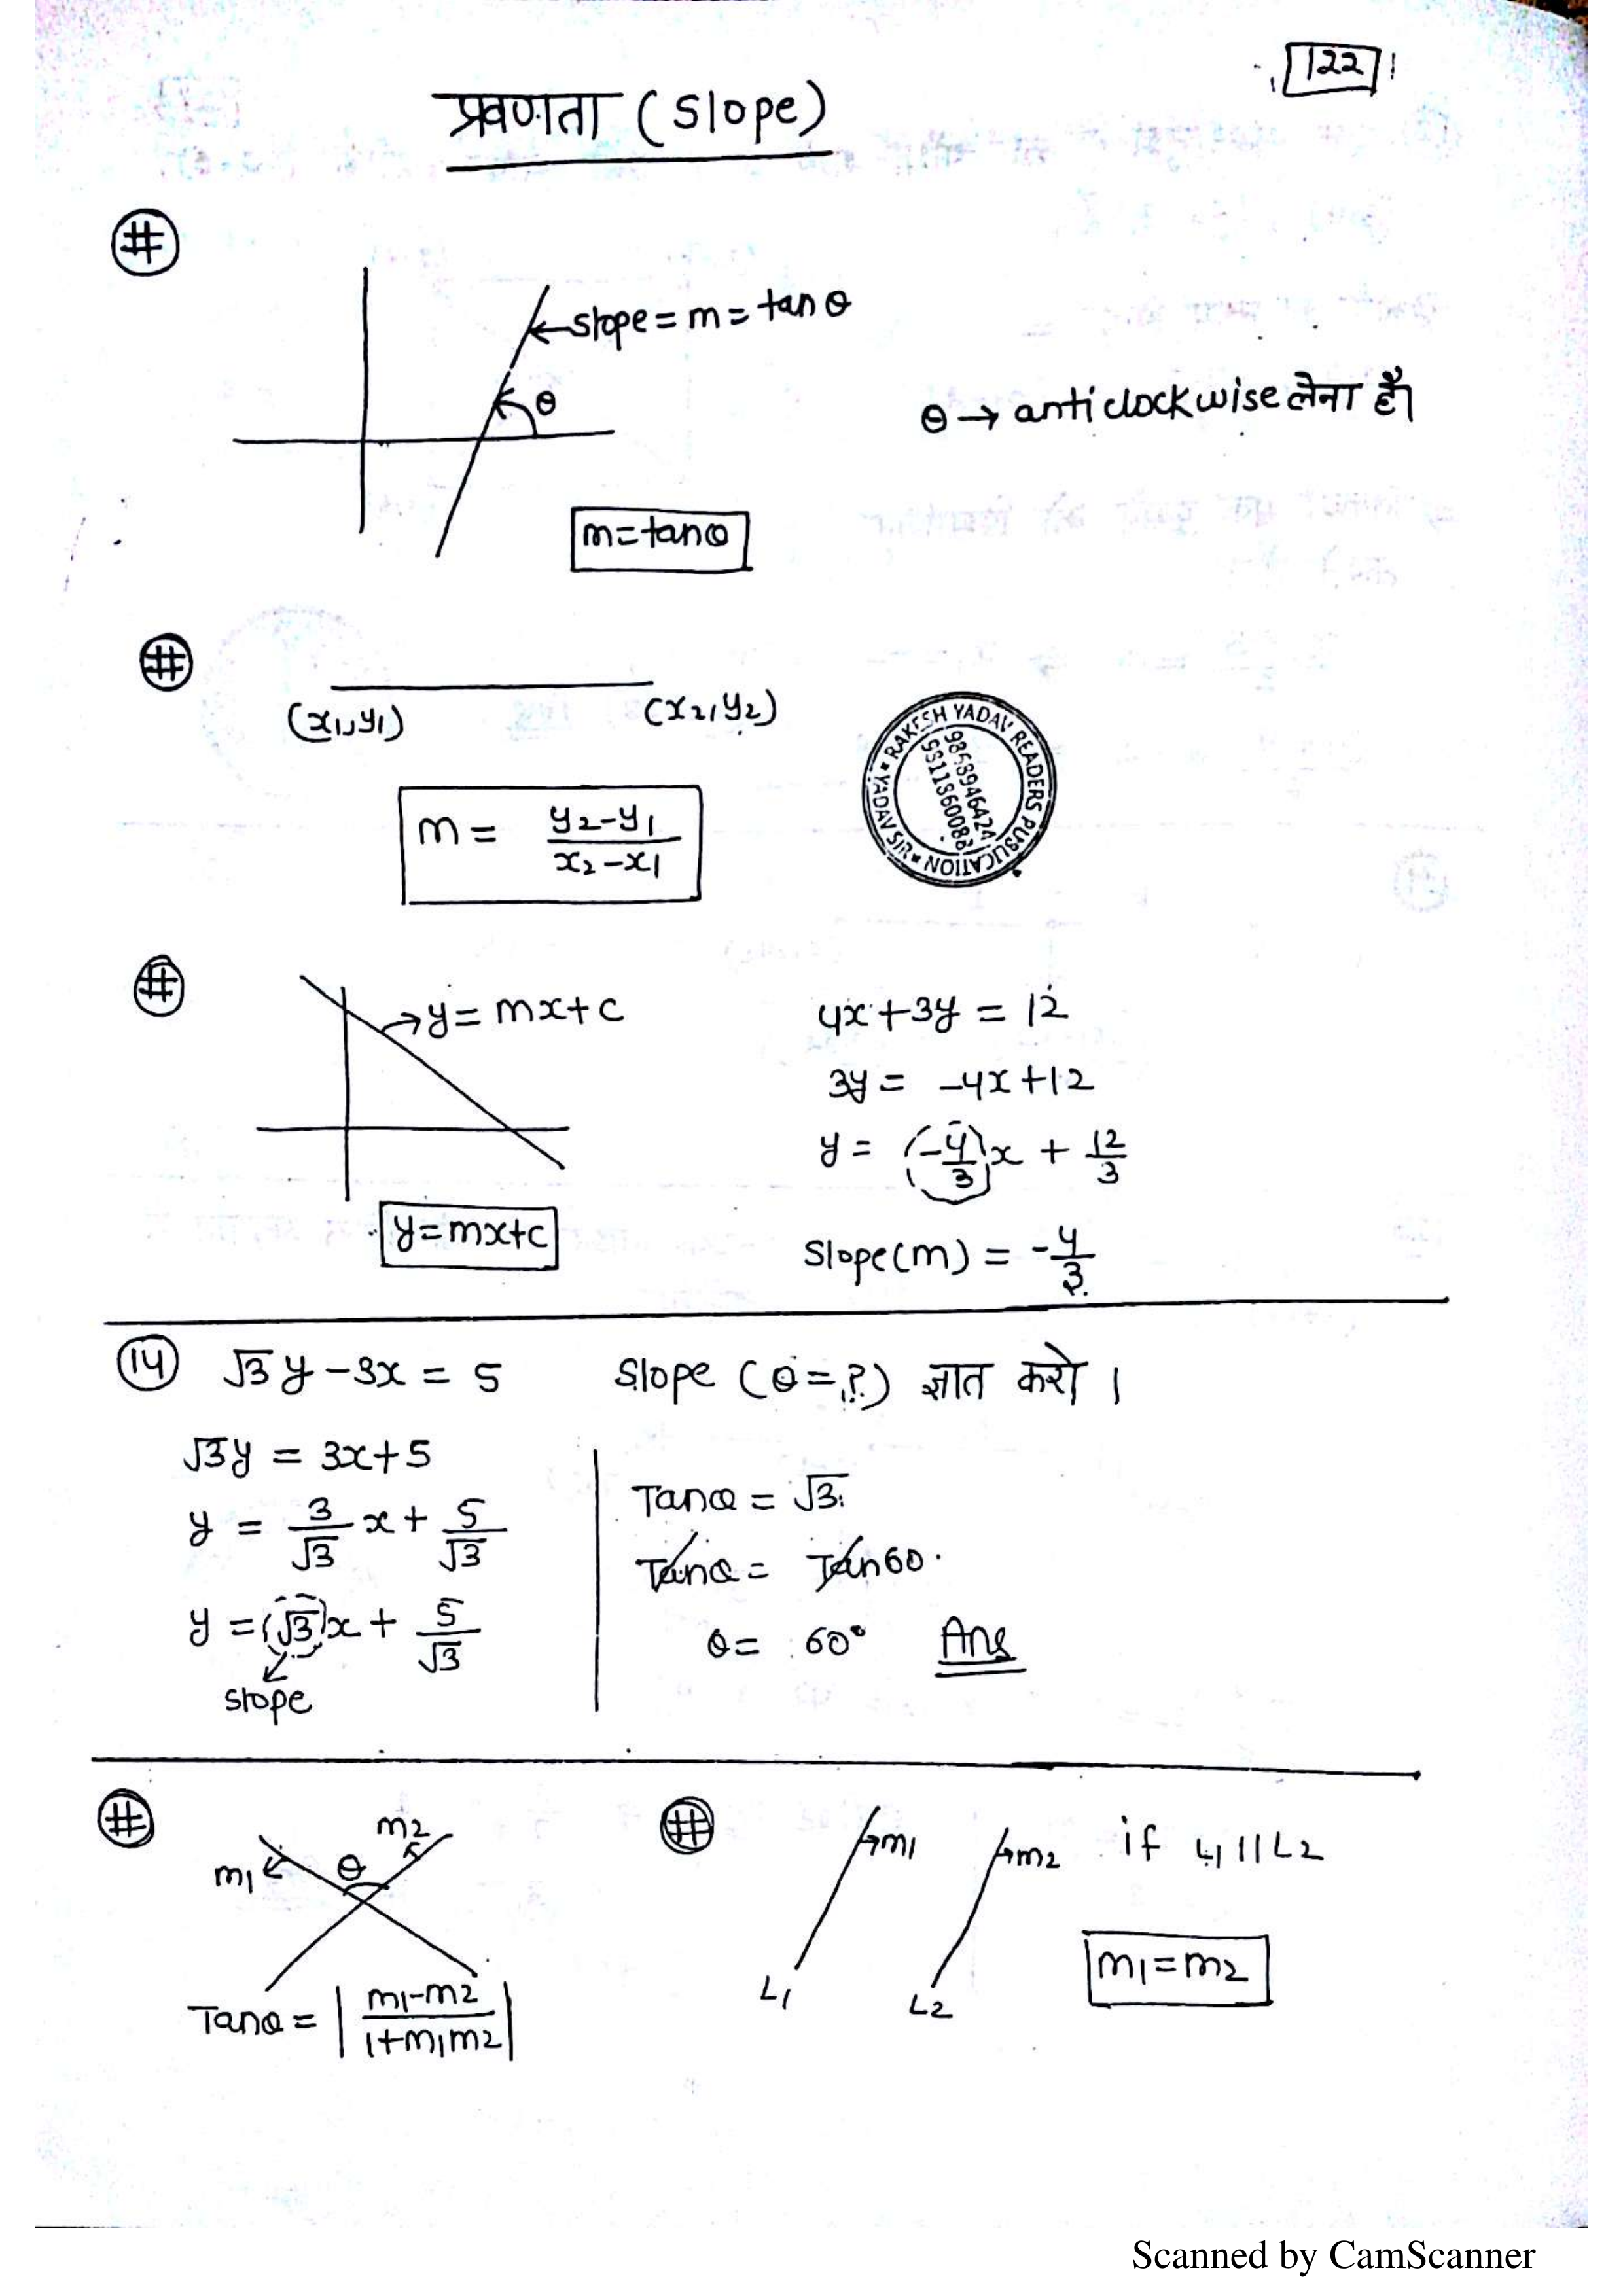 122
प्रवणता (slope)
#
slope = m = tan θ
θ
θ → anticlockwise लेना है।
m = tan θ
#
(x₁, y₁) (x₂, y₂)
RAKESH YADAV READERS PUBLICATION * YADAV SIR *
9311360088
m = \frac{y₂-y₁}{x₂-x₁}
#
y = mx + c
y = mx+c
4x + 3y = 12
3y = -4x + 12
y = (-\frac{4}{3})x + \frac{12}{3}
Slope(m) = -\frac{4}{3}
14 √3 y - 3x = 5 Slope (θ = ?) ज्ञात करो ।
√3y = 3x+5
y = \frac{3}{√3} x + \frac{5}{√3}
y = (√3)x + \frac{5}{√3}
slope
Tanθ = √3
Tanθ = Tan60
θ = 60° Ans
#
m₁ θ m₂
Tanθ = |\frac{m₁-m₂}{1+m₁m₂}|
#
m₁ m₂ if L₁ || L₂
L₁ L₂
m₁ = m₂
Scanned by CamScanner